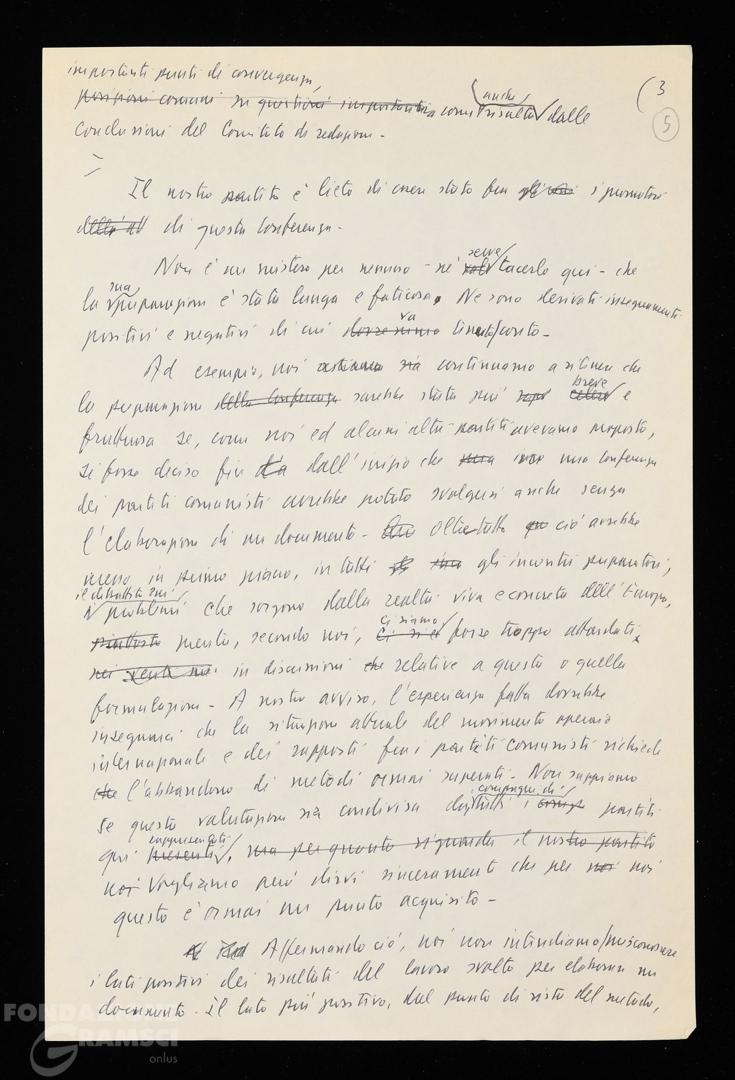 importanti punti di convergenza,
posizioni comuni su questioni importanti come risulta anche dalle
conclusioni del Comitato di redazione -
(3
5
Il nostro partito è lieto di essere stato fra gli i promotori
di questa Conferenza -
Non è un mistero per nessuno - né serve tacerlo qui - che
la sua preparazione è stata lunga e faticosa. Ne sono derivati insegnamenti
positivi e negativi di cui va tenuto conto -
Ad esempio, noi continuamo a ritenere che
la preparazione della Conferenza sarebbe stata più breve e
fruttuosa se, come noi ed alcuni altri partiti avevamo proposto,
si fosse deciso fin dall'inizio che una conferenza
dei partiti comunisti avrebbe potuto svolgersi anche senza
l'elaborazione di un documento - Oltretutto ciò avrebbe
messo in primo piano, in tutti gli incontri preparatori,
il dibattito sui
problemi che sorgono dalla realtà viva e concreta dell'Europa,
mentre, secondo noi, ci siamo forse troppo attardati
in discussioni relative a questa o quella
formulazione - A nostro avviso, l'esperienza fatta dovrebbe
insegnarci che la situazione attuale del movimento operaio
internazionale e dei rapporti fra i partiti comunisti richiede
che l'abbandono di metodi ormai superati - Non sappiamo
se questa valutazione sia condivisa da tutti i compagni dei partiti
qui rappresentati presenti, ma per quanto riguarda il nostro partito
noi Vogliamo però dirvi sinceramente che per noi noi
questo è ormai un punto acquisito -
Affermando ciò, noi non intendiamo misconoscere
i lati positivi dei risultati del lavoro svolto per elaborare un
documento - Il lato più positivo, dal punto di vista del metodo,
FONDAZIONE
GRAMSCI
onlus